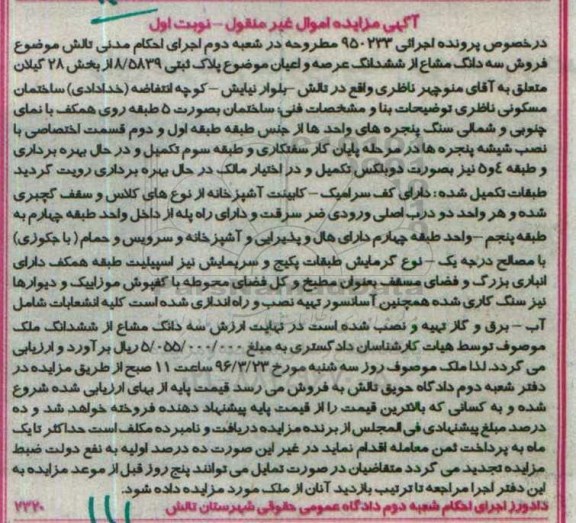 آگهی مزایده اموال غیر منقول - نوبت اول
درخصوص پرونده اجرائی ۹۵۰۲۳۳ مطروحه در شعبه دوم اجرای احکام مدنی تالش موضوع
فروش سه دانگ مشاع از ششدانگ عرصه و اعیان موضوع پلاک ثبتی ۸/۵۸۳۹ از بخش ۲۸ گیلان
متعلق به آقای منوچهر ناظری واقع در تالش - بلوار نیایش - کوچه انتفاضه (خدادادی) ساختمان
مسکونی ناظری توضیحات بنا و مشخصات فنی: ساختمان بصورت ۵ طبقه روی همکف با نمای
جنوبی و شمالی سنگ پنجره های واحد ها از جنس طبقه طبقه اول و دوم قسمت اختصاصی با
نصب شیشه پنجره ها در مرحله پایان کار سفتکاری و طبقه سوم تکمیل و در حال بهره برداری
و طبقه ۴و۵ نیز بصورت دوبلکس تکمیل و در اختیار مالک در حال بهره برداری رویت گردید
طبقات تکمیل شده: دارای کف سرامیک - کابینت آشپزخانه از نوع های کلاس و سقف گچبری
شده و هر واحد دو درب اصلی ورودی ضر سرقت و دارای راه پله از داخل واحد طبقه چهارم به
طبقه پنجم - واحد طبقه چهارم دارای هال و پذیرایی و آشپزخانه و سرویس و حمام (با جکوزی)
با مصالح درجه یک - نوع گرمایش طبقات پکیج و سرمایش نیز اسپیلیت طبقه همکف دارای
انباری بزرگ و فضای مسقف بعنوان مطبخ و کل فضای محوطه با کفپوش موزاییک و دیوارها
نیز سنگ کاری شده همچنین آسانسور تهیه نصب و راه اندازی شده است کلیه انشعابات شامل
آب - برق و گاز تهیه و نصب شده است در نهایت ارزش سه دانگ مشاع از ششدانگ ملک
موصوف توسط هیات کارشناسان دادگستری به مبلغ ۵/۰۵۵/۰۰۰/۰۰۰ ریال برآورد و ارزیابی
می گردد. لذا ملک موصوف روز سه شنبه مورخ ۹۶/۳/۲۳ ساعت ۱۱ صبح از طریق مزایده در
دفتر شعبه دوم دادگاه حویق تالش به فروش می رسد قیمت پایه از بهای ارزیابی شده شروع
شده و به کسانی که بالاترین قیمت را از قیمت پایه پیشنهاد دهنده فروخته خواهد شد و ده
درصد مبلغ پیشنهادی فی المجلس از برنده مزایده دریافت و نامبرده مکلف است حداکثر تا یک
ماه به پرداخت ثمن معامله اقدام نماید در غیر این صورت ده درصد اولیه به نفع دولت ضبط
مزایده تجدید می گردد متقاضیان در صورت تمایل می توانند پنج روز قبل از موعد مزایده به
این دفتر اجرا مراجعه تا ترتیب بازدید آنان از ملک مورد مزایده داده شود.
دادورز اجرای احکام شعبه دوم دادگاه عمومی حقوقی شهرستان تالش ۲۳۲۰